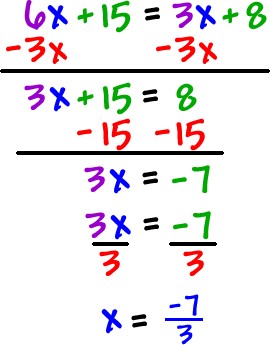 6x + 15 = 3x + 8
-3x -3x
3x + 15 = 8
-15 -15
3x = -7
3x = -7
3 3
x = -7/3